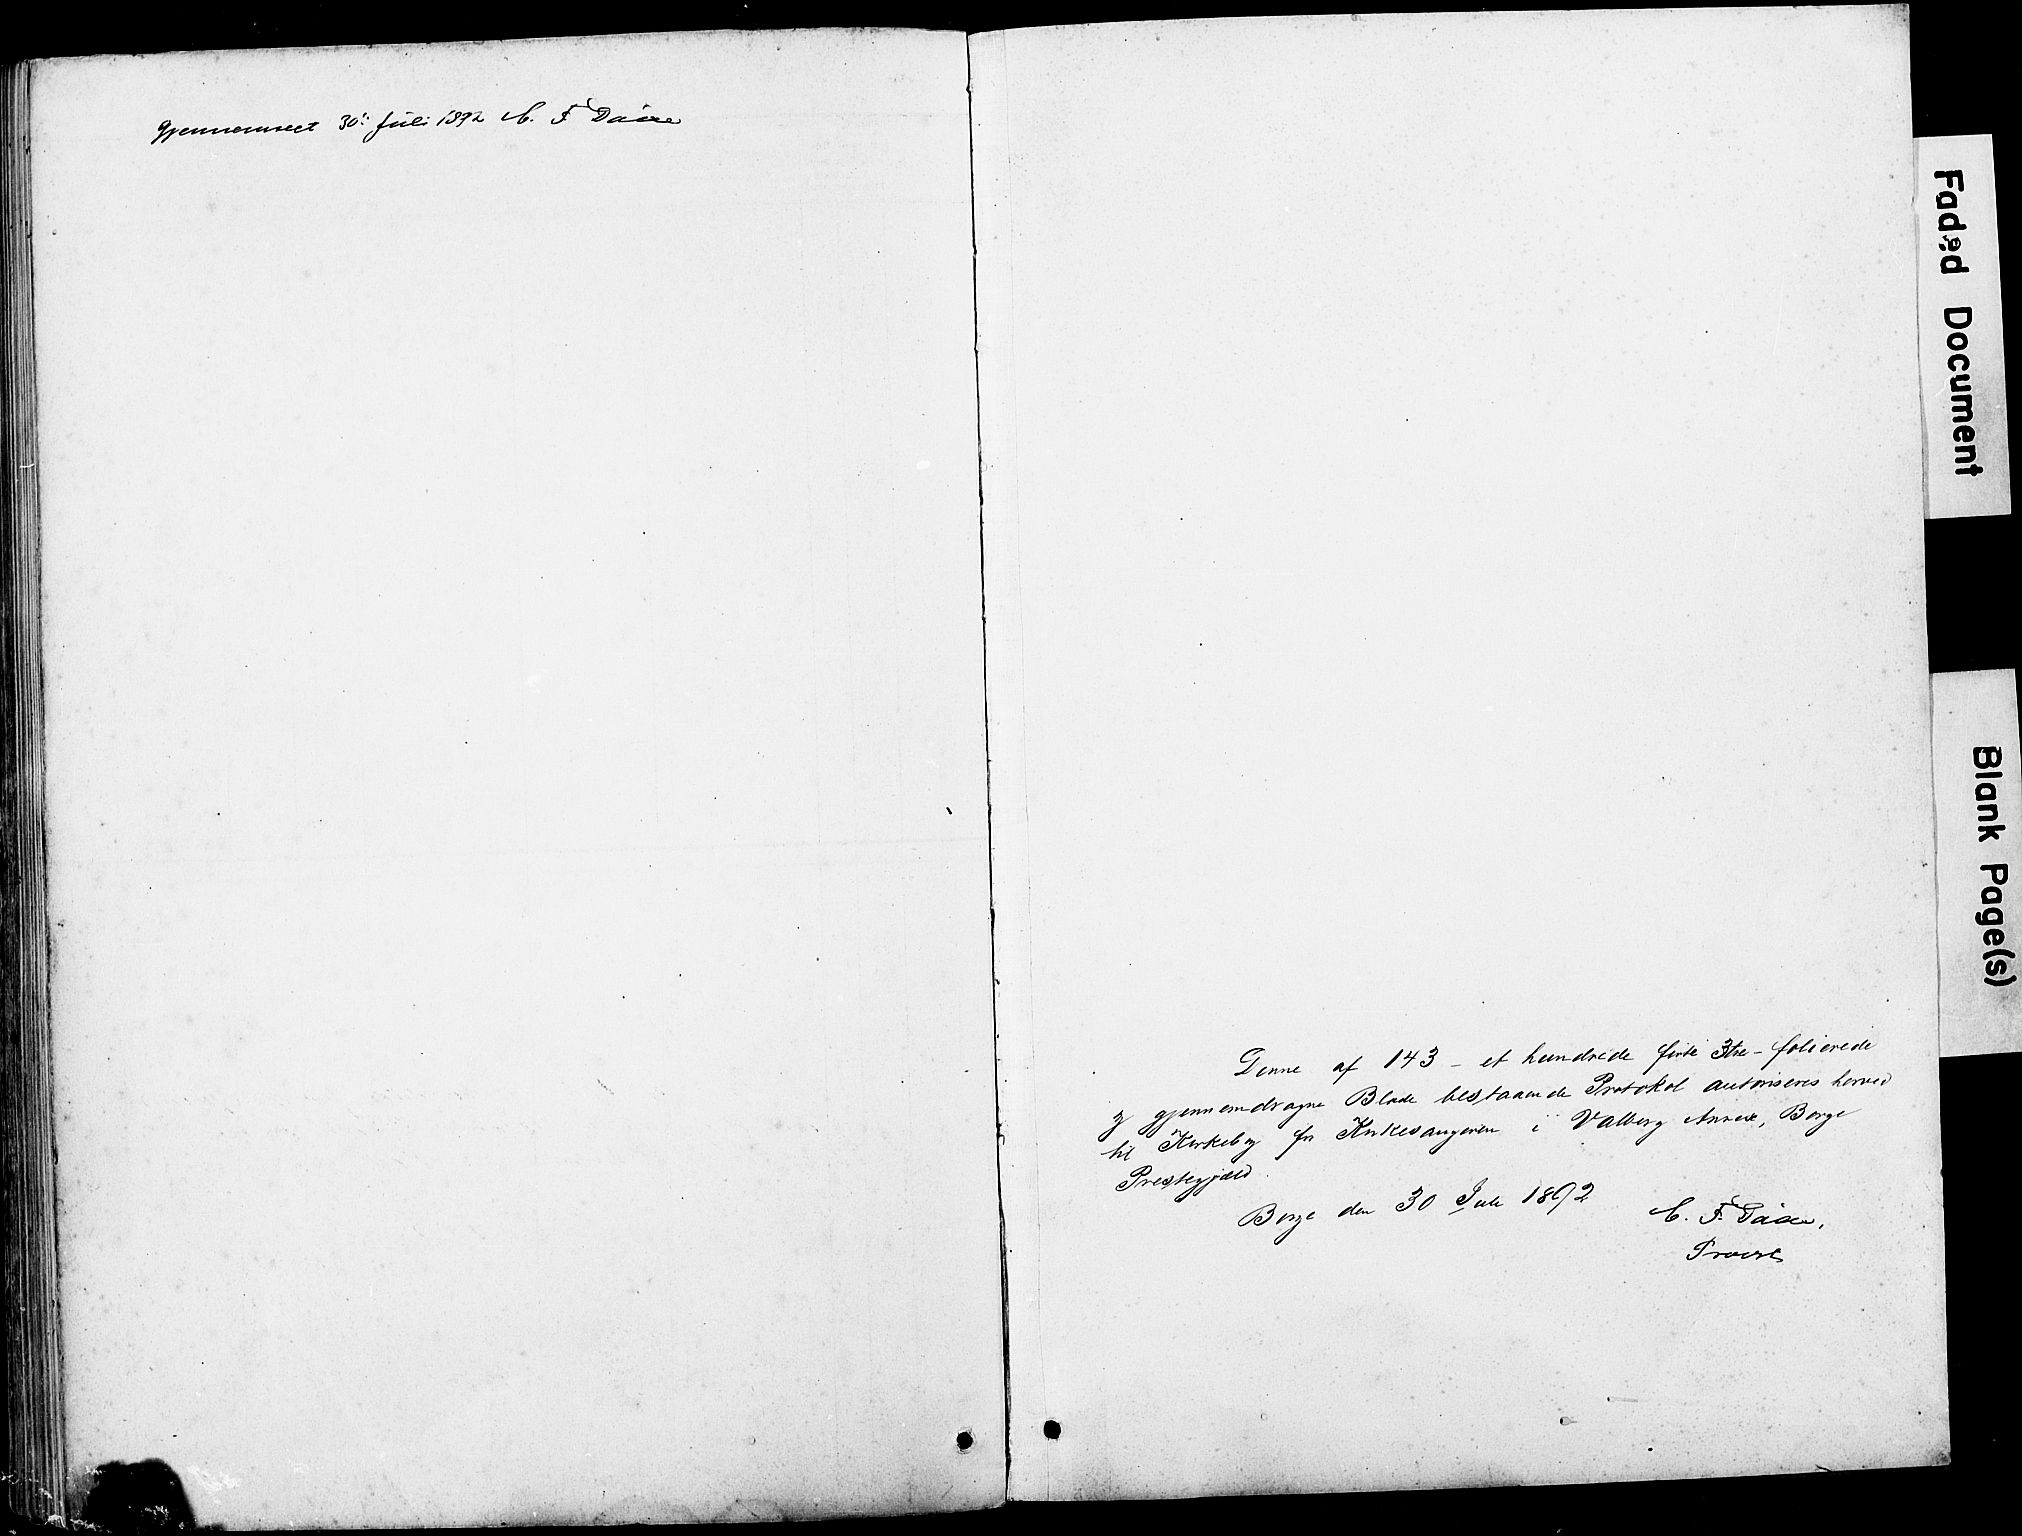 Gjennemseet 30te Juli 1892 C. F. Daae
Denne af 143 - et hundrede firti 3tre - folierede
og gjennemdragne Blade bestaaende Protokol autoriseres herved
til Kirkebog for Kirkesangeren i Valberg Annex, Borge
Prestegjæld.
Borge den 30 Juli 1892
C. F. Daae,
Provst
Faded Document
Blank Page(s)